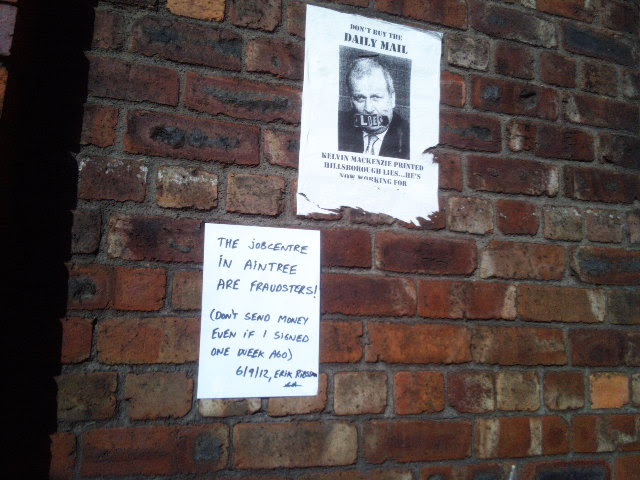 DON'T BUY THE
DAILY MAIL
LIES
KELVIN MACKENZIE PRINTED
HILLSBOROUGH LIES...HE'S
NOW WORKING FOR
THE JOBCENTRE
IN AINTREE
ARE FRAUDSTERS!
(DON'T SEND MONEY
EVEN IF I SIGNED
ONE WEEK AGO)
6/9/12, ERIK